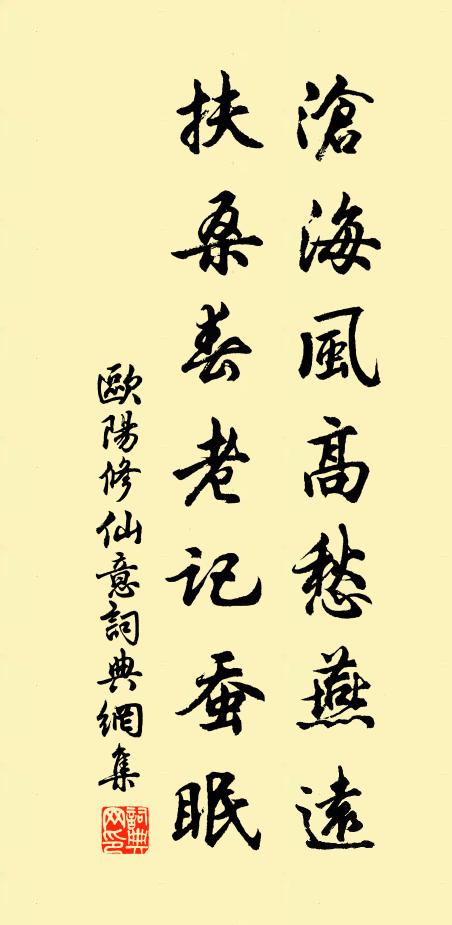 滄海風高愁燕遠
扶桑春老記蚕眠
歐陽修仙意詞典網集
詞典網印